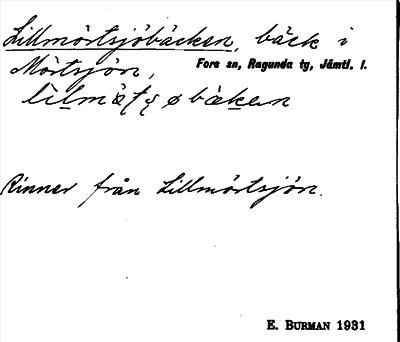 Lillmörtsjöbäcken, bäck i
Mörtsjön, Fors sn, Ragunda tg, Jämtl. l.
Rinner från Lillmörtsjön.
E. BURMAN 1931